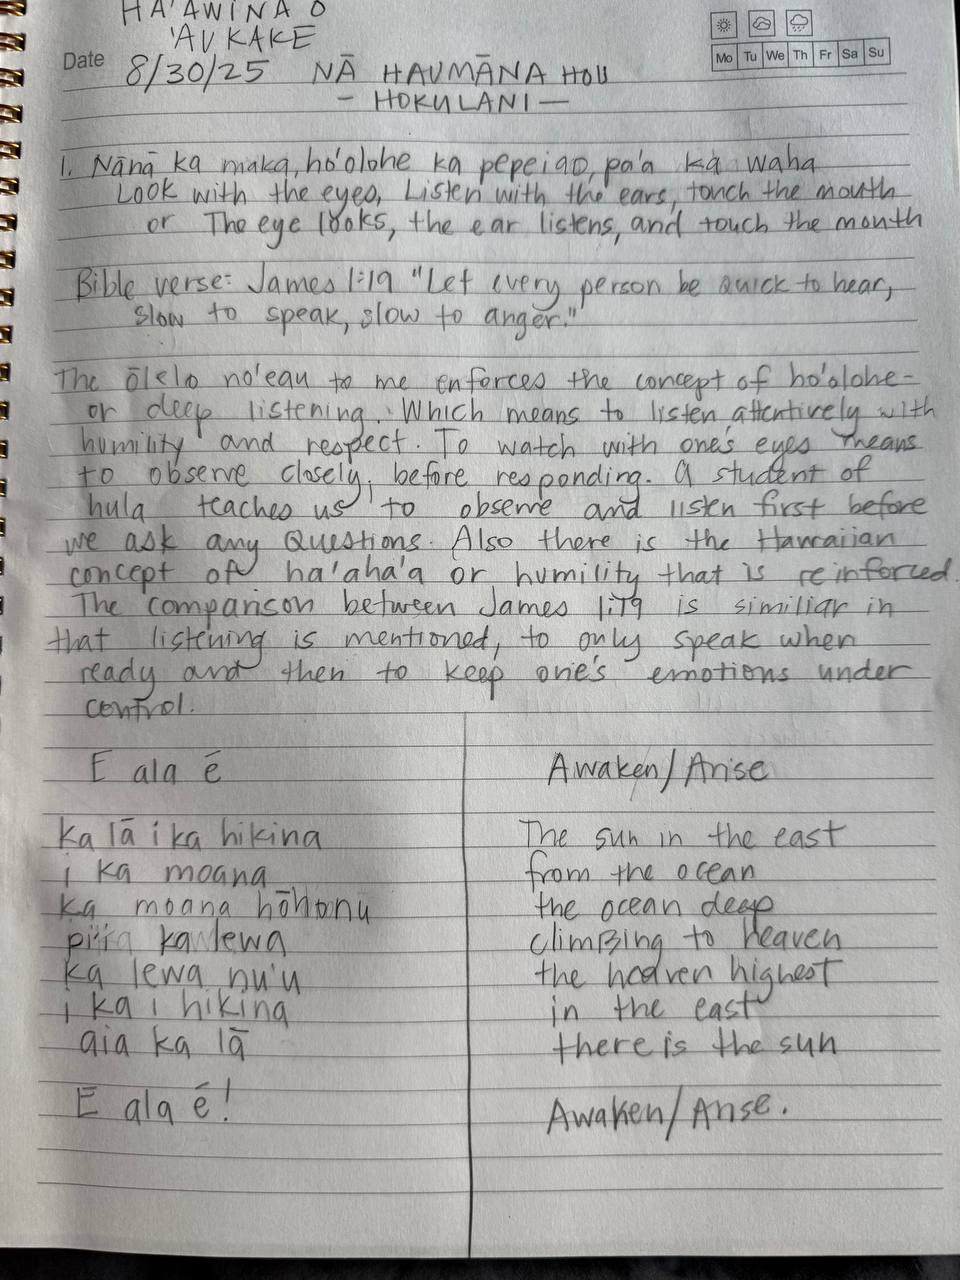 HA'AWINA O
'AUKAKE
Date 8/30/25 NĀ HAUMĀNA HOU
Mo Tu We Th Fr Sa Su
- HOKULANI -
1. Nānā ka maka, ho'olohe ka pepeiao, pa'a ka waha
Look with the eyes, Listen with the ears, touch the mouth
or The eye looks, the ear listens, and touch the mouth
Bible verse: James 1:19 "Let every person be quick to hear,
slow to speak, slow to anger."
The ōlelo no'eau to me enforces the concept of ho'olohe -
or deep listening. Which means to listen attentively with
humility and respect. To watch with one's eyes means
to observe closely, before responding. A student of
hula teaches us to observe and listen first before
we ask any Questions. Also there is the Hawaiian
concept of ha'aha'a or humility that is reinforced.
The comparison between James 1:19 is similiar in
that listening is mentioned, to only speak when
ready and then to keep one's emotions under
control.
E ala ē
Ka lā i ka hikina
i ka moana
ka moana hōhonu
pi'i ka lewa
ka lewa nu'u
i ka i hikina
aia ka lā
E ala ē!
Awaken/Arise
The sun in the east
from the ocean
the ocean deep
climBing to heaven
the heaven highest
in the east
there is the sun
Awaken/Arise.